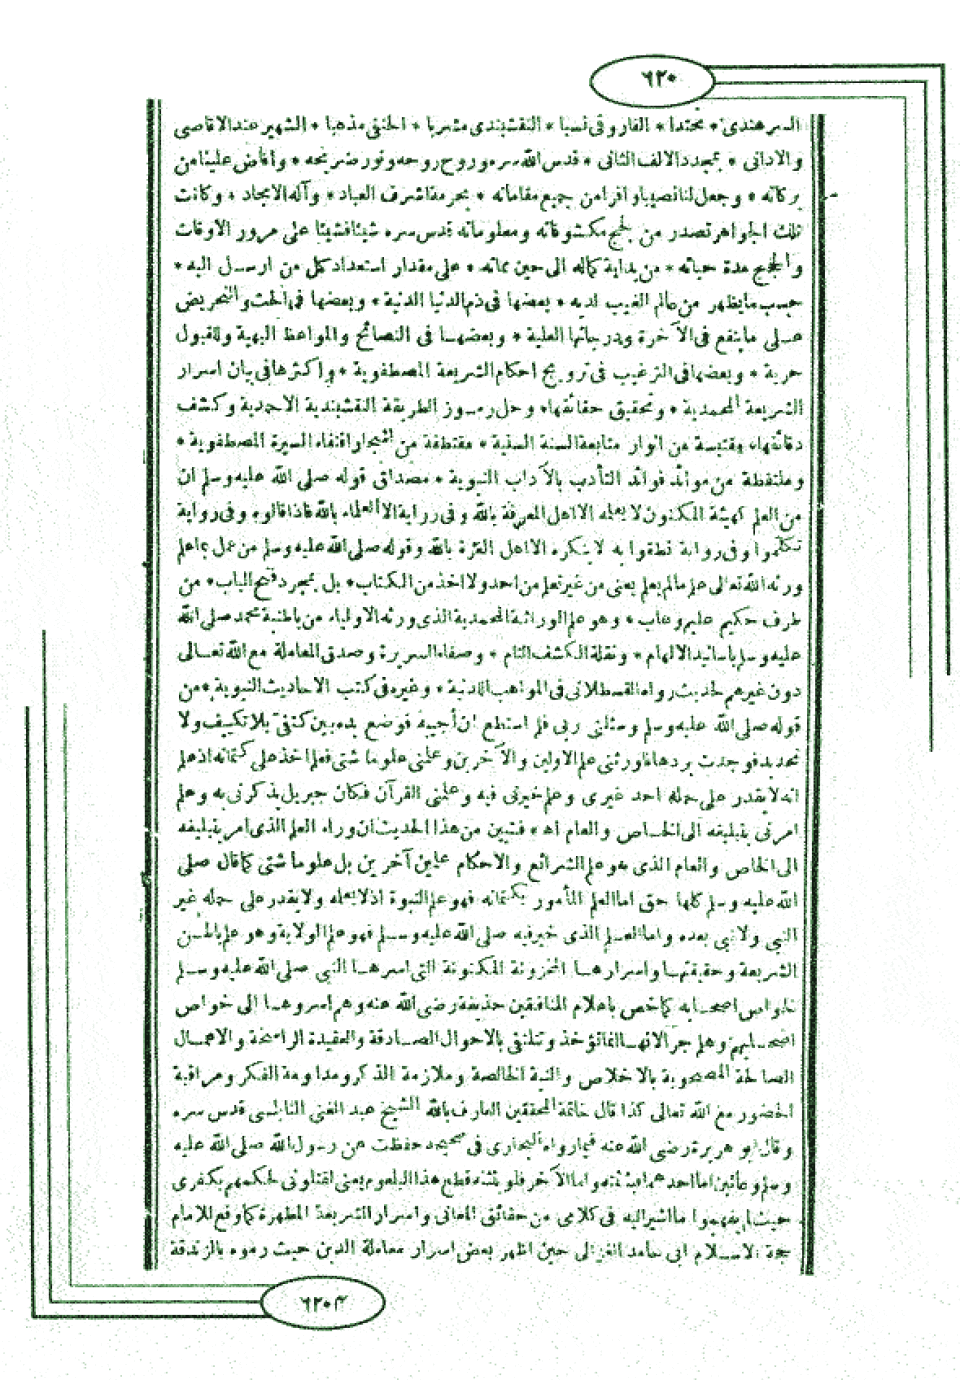 ٦٢٠
السرهندى * محتدا * الفاروقى نسبا * النقشبندى مشربا * الحنفى مذهبا * الشهير عند الاقاصى
والادانى * بمجدد الالف الثانى * قدس الله سره وروح روحه ونور ضريحه * وافاض علينا من
بركاته * وجعل لنا نصيبا وافرا من جميع مقاماته * بحرمة اشرف العباد * وآله الامجاد * وكانت
تلك الجواهر تصدر من لجج مكشوفاته ومعلوماته قدس سره شيئا فشيئا على مرور الاوقات
والحجج مدة حياته * من بداية كماله الى حين مماته * على مقدار استعداد كل من ارسل اليه *
حسب ما يظهر من عالم الغيب لديه * بعضها فى ذم الدنيا الدنية * وبعضها فى الحث والتحريض
على ما ينفع فى الآخرة ودرجاتها العلية * وبعضها فى النصائح والمواعظ البهية وللقبول
حرية * وبعضها فى الترغيب فى ترويج احكام الشريعة المصطفوية * واكثرها فى بيان اسرار
الشريعة المحمدية * وتحقيق حقائقها * وحل رموز الطريقة النقشبندية الاحمدية وكشف
دقائقها * مقتبسة من انوار متابعة السنة السنية * مقتطفة من اشجار اقتفاء السيرة المصطفوية *
وملتقطة من موائد فوائد التأدب بالآداب النبوية * مصداق قوله صلى الله عليه وسلم ان
من العلم كهيئة المكنون لا يعلمه الا اهل المعرفة بالله وفى رواية الا العلماء بالله فاذا قالوه وفى رواية
تكلموا وفى رواية نطقوا به لا ينكره الا اهل الغرة بالله وقوله صلى الله عليه وسلم من عمل بما علم
ورثه الله تعالى علم مالم يعلم يعنى من غير تعلم من احد ولا اخذ من الكتاب * بل بمجرد فتح الباب * من
طرف حكيم عليم وهاب * وهو علم الوراثة المحمدية الذى ورثه الاولياء من باطنية محمد صلى الله
عليه وسلم باسانيد الالهام * ونقلة الكشف التام * وصفاء السريرة وصدق المعاملة مع الله تعالى
دون غيرهم لحديث رواه القسطلانى فى المواهب اللدنية * وغيره فى كتب الاحاديث النبوية * من
قوله صلى الله عليه وسلم وسئلنى ربى فلم استطع ان أجيبه فوضع يده بين كتفىّ بلا تكييف ولا
تحديد فوجدت بردها فاورثنى علم الاولين والآخرين وعلمنى علوما شتى فعلم اخذ على كتمانه اذ علم
انه لا يقدر على حمله احد غيرى وعلم خيرنى فيه وعلمنى القرآن فكان جبريل يذكرنى به وعلم
امرنى بتبليغه الى الخاص والعام اه * فتبين من هذا الحديث ان وراء العلم الذى امر بتبليغه
الى الخاص والعام الذى هو علم الشرائع والاحكام علمين آخرين بل علوما شتى كما قال صلى
الله عليه وسلم كلها حق اما العلم المأمور بكتمانه فهو علم النبوة اذ لا يعلمه ولا يقدر على حمله غير
النبى ولا نبى بعده واما العلم الذى خير فيه صلى الله عليه وسلم فهو علم الولاية وهو علم باطن
الشريعة وحقيقتها واسرارها المخزونة المكنونة التى اسرها النبى صلى الله عليه وسلم
لخواص اصحابه كما خص باعلام المنافقين حذيفة رضى الله عنه وهم اسروها الى خواص
اصحابهم وهلم جرا لانها انما تؤخذ وتتلقى بالاحوال الصادقة والعقيدة الراسخة والاعمال
الصالحة المصحوبة بالاخلاص والنية الخالصة وملازمة الذكر ومداومة الفكر ومراقبة
الحضور مع الله تعالى كذا قال خاتمة المحققين العارف بالله الشيخ عبد الغنى النابلسى قدس سره
وقال ابو هريرة رضى الله عنه فيما رواه البخارى فى صحيحه حفظت عن رسول الله صلى الله عليه
وسلم وعائين اما احدهما فبثثته واما الآخر فلو بثثته قطع هذا البلعوم يعنى لقتلونى لحكمهم بكفرى
حيث لم يفهموا ما اشير اليه فى كلامى من حقائق المعانى واسرار الشريعة المطهرة كما وقع للامام
حجة الاسلام ابى حامد الغزالى حين اظهر بعض اسرار معاملة الدين حيث رموه بالزندقة